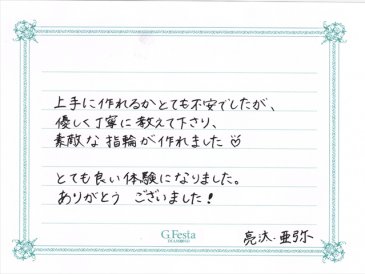 上手に作れるかとても不安でしたが、
優しく丁寧に教えて下さり、
素敵な指輪が作れました♡
とても良い体験になりました。
ありがとう ございました!
G.Festa
亮汰・亜弥